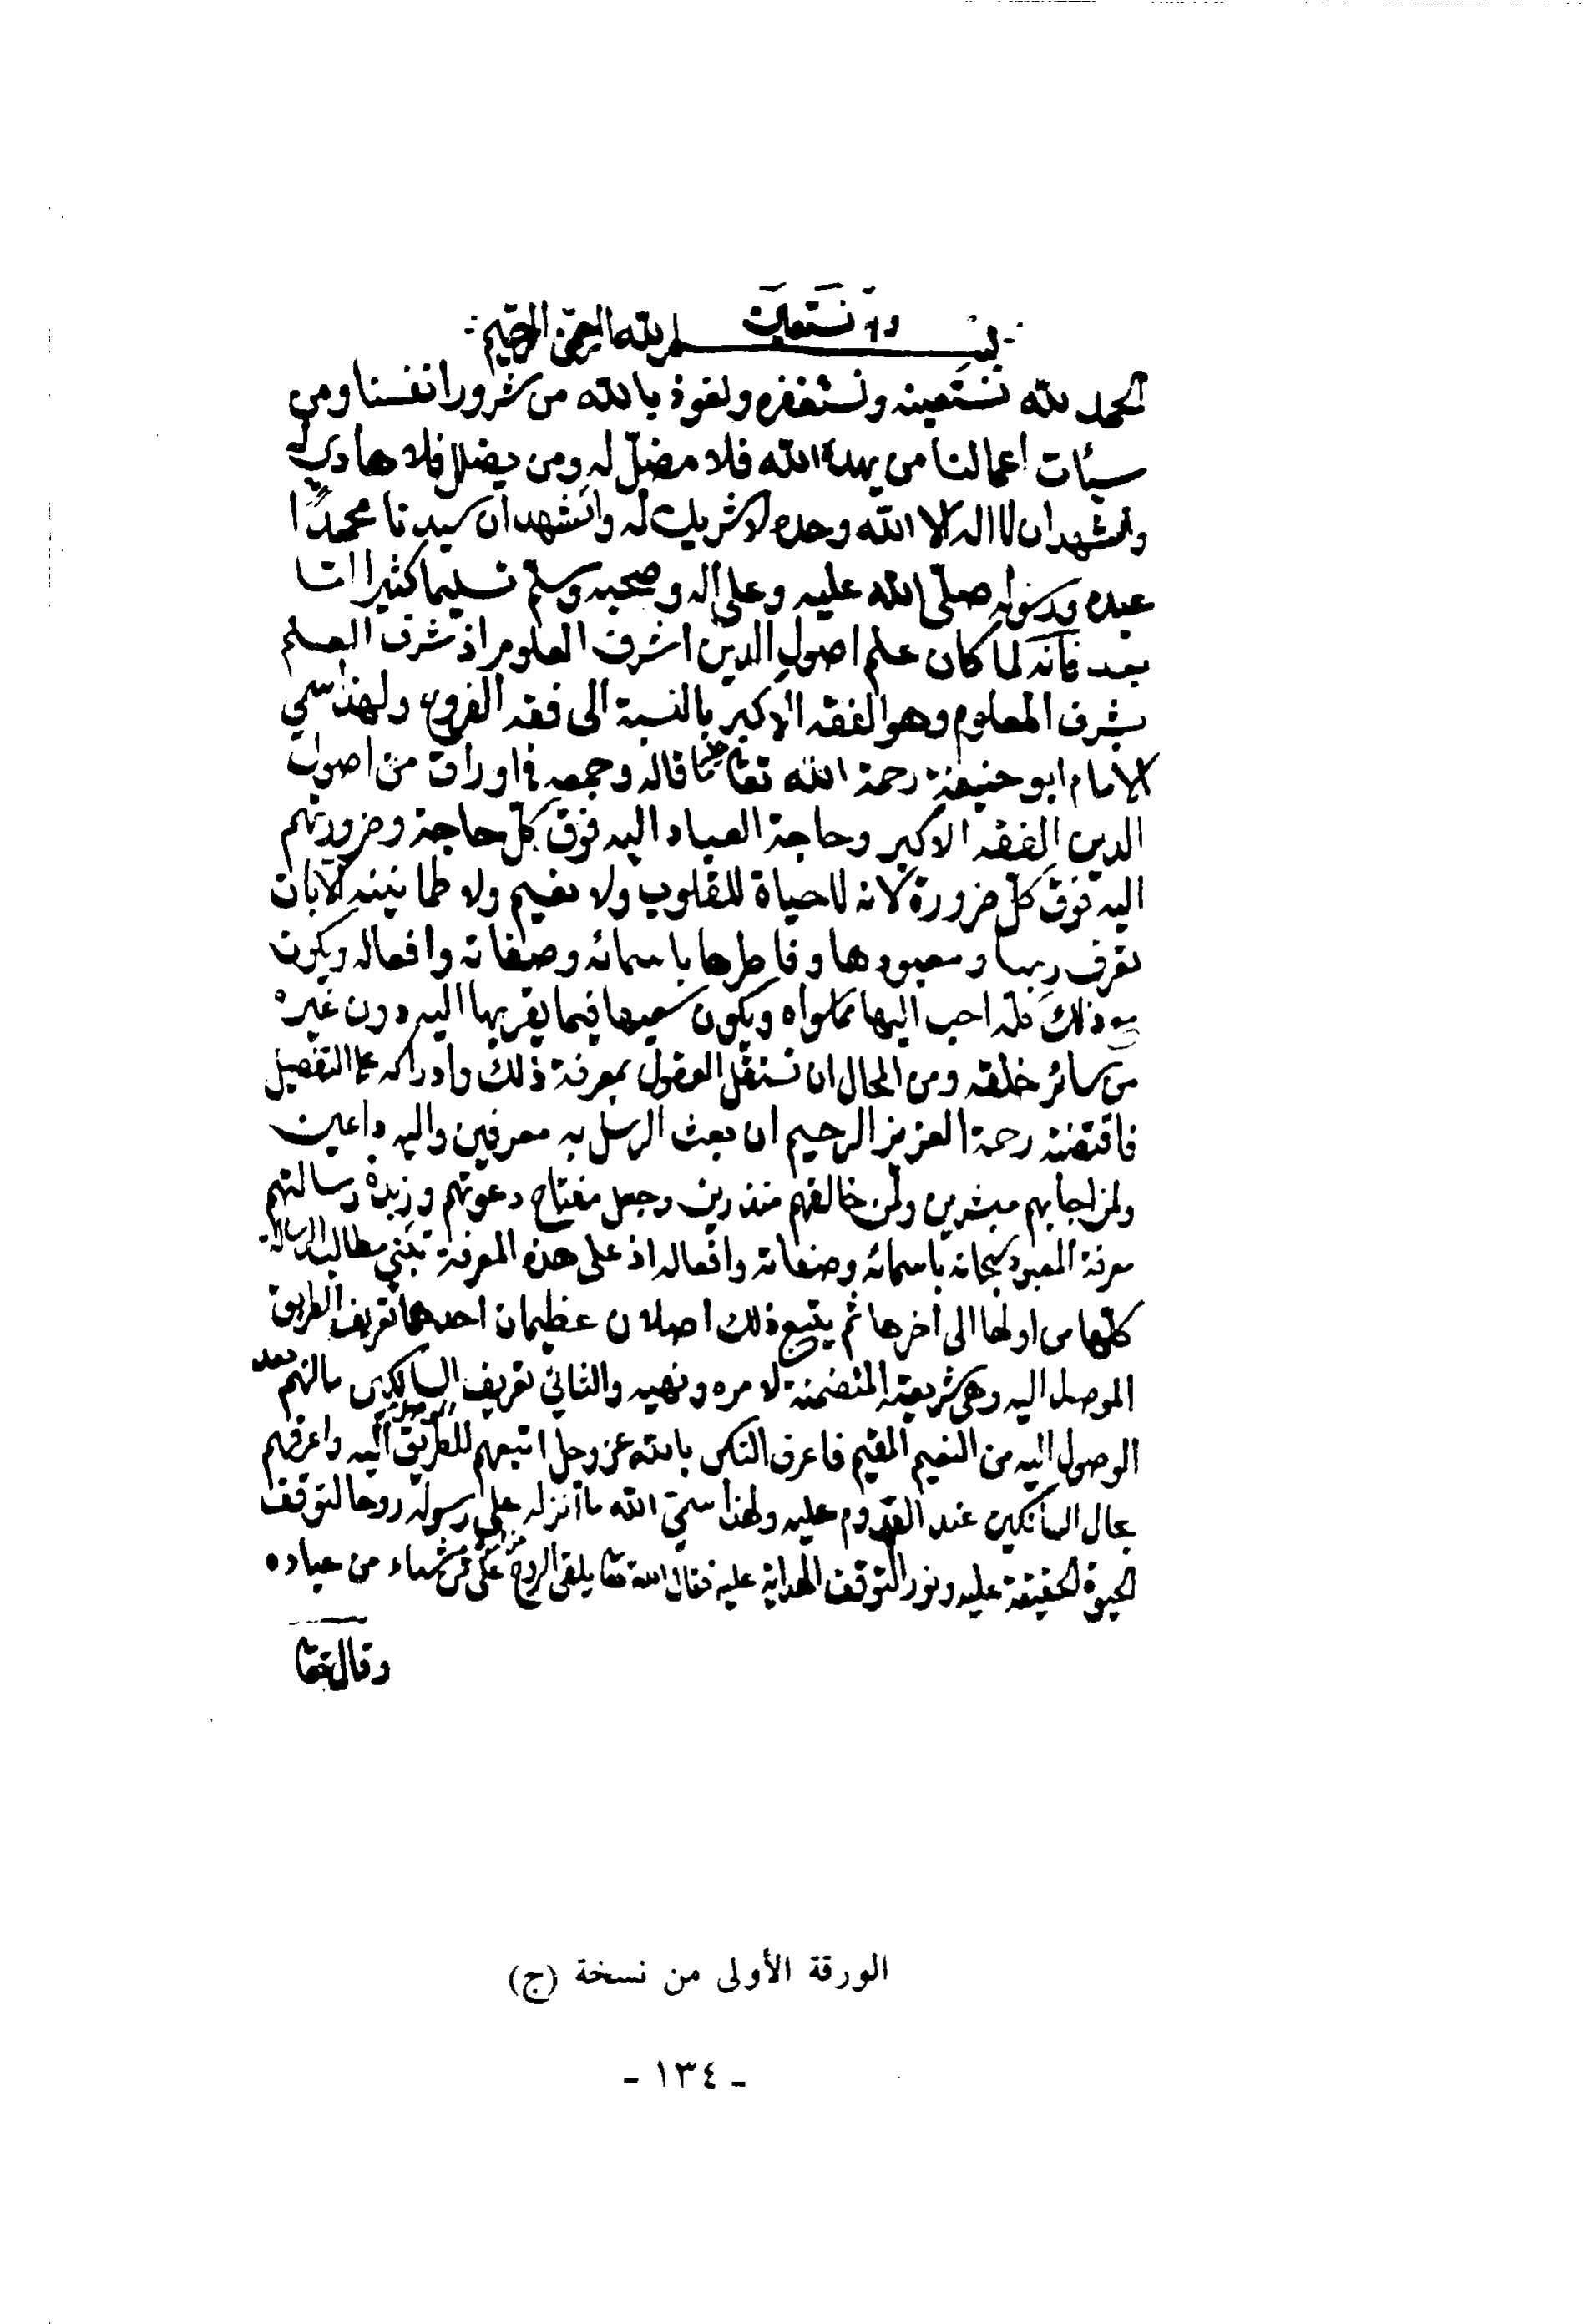 بسم الله الرحمن الرحيم
وبه نستعين
الحمد لله نستعينه ونستغفره ونعوذ بالله من شرور انفسنا ومن
سيئات اعمالنا من يهده الله فلا مضل له ومن يضلل فلا هادي له
ونشهد ان لا اله الا الله وحده لا شريك له وانشهد ان سيدنا محمدًا
عبده ورسوله صلى الله عليه وعلى اله وصحبه وسلم تسليما كثيرا اما
بعد فانه لما كان علم اصول الدين اشرف العلوم اذ شرف العلم
بشرف المعلوم وهو الفقه الاكبر بالنسبة الى فقه الفروع ولهذا سمي
الامام ابو حنيفة رحمة الله تعا ما قاله وجمعه في اوراق من اصول
الدين الفقه الاكبر وحاجة العباد اليه فوق كل حاجة وضرورتهم
اليه فوق كل ضرورة لانه لا حياة للقلوب ولا نعيم ولا طمانينه الا بان
تعرف ربها ومعبودها وفاطرها باسمائه وصفاته وافعاله ويكون
مع ذلك كله احب اليها مما سواه ويكون سعيها فيما يقربها اليه دون غيره
من سائر خلقه ومن المحال ان تستقل العقول بمعرفة ذلك وادراكه على التفصيل
فاقتضة رحمة العزيز الرحيم ان بعث الرسل به معرفين واليه داعين
ولمن اجابهم مبشرين ولمن خالفهم منذرين وجعل مفتاح دعوتهم وزبدة رسالتهم
معرفة المعبود سبحانه باسمائه وصفاته وافعاله اذ على هذه المعرفة تبتني مطالب الرسالة
كلها من اولها الى اخرها ثم يتبع ذلك اصلان عظيمان احدهما تعريف الطريق
الموصل اليه وهي شريعته المتضمنة لامره ونهيه والثاني تعريف السالكين مالهم بعد
الوصول اليه من النعيم المقيم فاعرف الناس بالله عز وجل اتبعهم للطريق الموصل اليه واعرفهم
بحال السالكين عند القدوم عليه ولهذا سمى الله ما انزله على رسوله روحا لتوقف
الحيوة الحقيقة عليه ونور التوقف الهداية عليه فقال الله تعا يلقى الروح من امره على من يشاء من عباده
وقال تعا
الورقة الأولى من نسخة (ج)
- ١٣٤ -